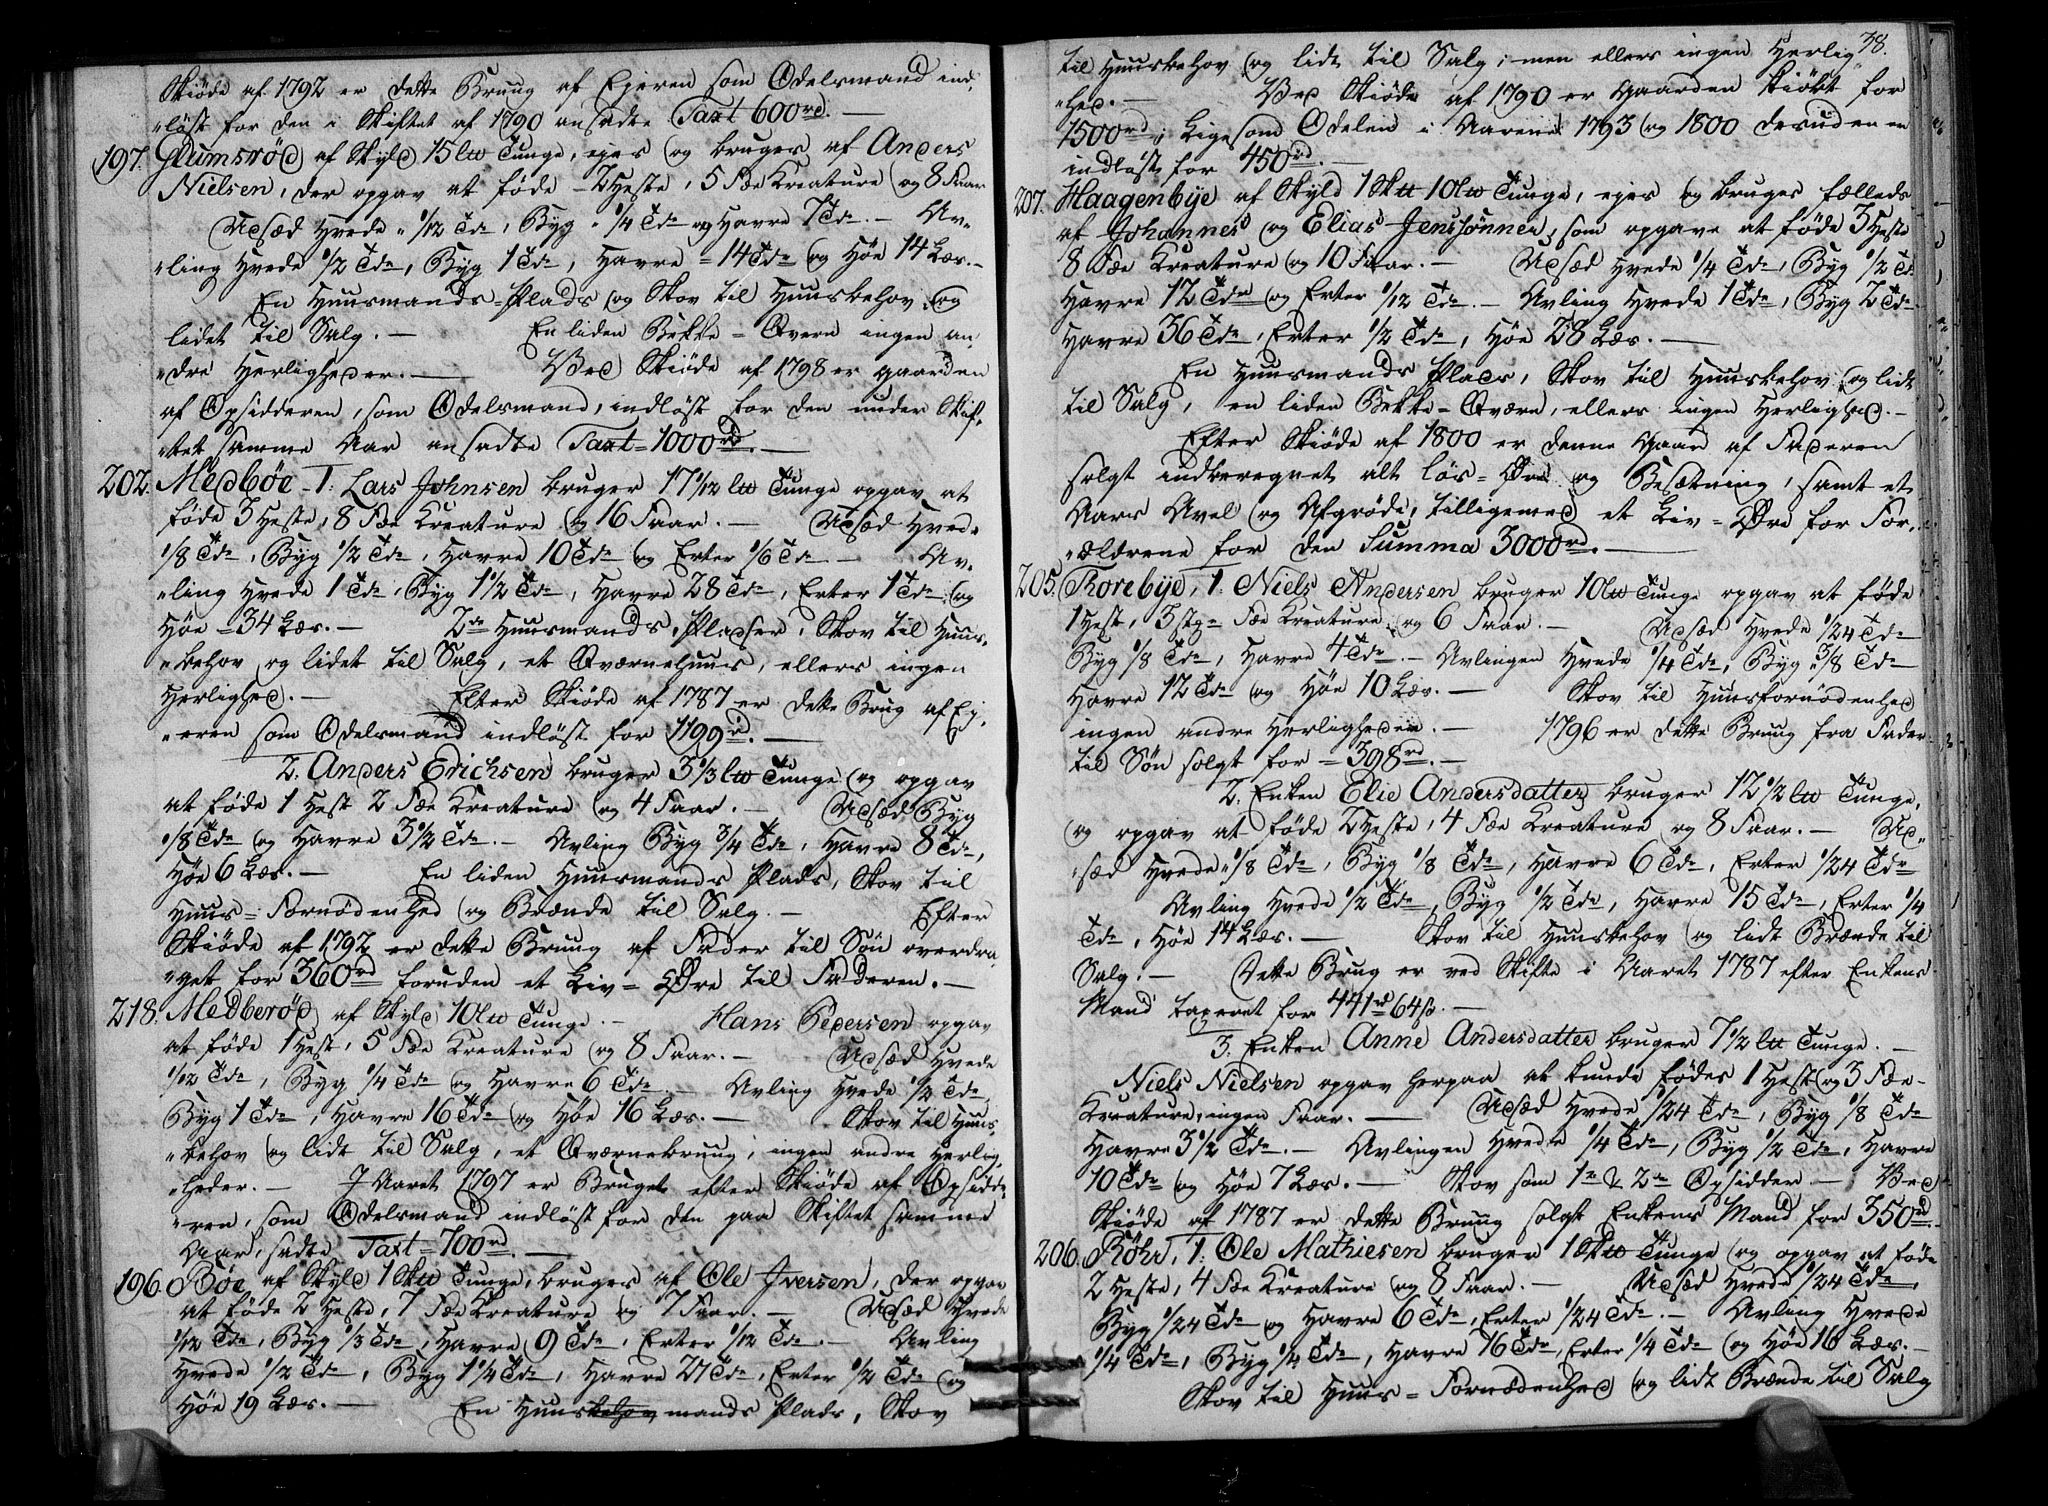 Skiøde af 1792 er dette Bruug af Ejeren som Odelsmand ind-
„løst for den i Skiftet af 1790 ansadte Taxt 600rd. —
197. Glumsrød af Skyld 15 l℔ Tunge, ejes og bruges af Anders
Nielsen, der opgav at føde 2 Heste, 5 Fæe Kreature og 8 Faar
Udsæd Hvede „ 1/12 Tde, Byg „ 1/4 Tde og Havre 7 Tde. — Av-
„ling Hvede 1/2 Tde, Byg 1 Tde, Havre = 14 Tde og Høe 14 Læs. —
En Huusmands-Plads og Skov til Huusbehov, og
lidet til Salg. — En liden Bekke-Qvern ingen an-
„dre Herligheder. — Ved Skiøde af 1798 er Gaarden
af Opsidderen, som Odelsmand, indløst for den under Skif-
„tet samme Aar ansadte Taxt = 1000rd. —
202. Medbøe 1. Lars Johnsen bruger 17 1/2 l℔ Tunge opgav at
føde 3 Heste, 8 Fæe Kreature og 16 Faar. — Udsæd Hvede
1/8 Tde, Byg 1/2 Tde, Havre 10 Tde og Erter 1/6 Tde. — Av-
„ling Hvede 1 Tde, Byg 1 1/2 Tde, Havre 28 Tde, Erter 1 Tde og
Høe = 34 Læs. — 2de Huusmands Pladser, Skov til Huus-
„behov og lidet til Salg, et Qværnehuus, ellers ingen
Herlighed. — Efter Skiøde af 1787 er dette Brug af Ej-
„eren som Odelsmand indløst for 1199rd. —
2. Anders Erichsen bruger 3 1/3 l℔ Tunge og opgav
at føde 1 Hest 2 Fæe Kreature og 4 Faar. — Udsæd Byg
1/8 Tde og Havre 3 1/2 Tde. — Avling Byg 3/4 Tde, Havre 8 Tde,
Høe 6 Læs. — En liden Huusmands Plads, Skov til
Huus-Fornødenhed og Brænde til Salg. — Efter
Skiøde af 1792 er dette Bruug af Fader til Søn overdra-
„get for 360rd foruden et Liv-Øre til Faderen. —
218. Medberød af Skyld 10 l℔ Tunge. — Hans Pedersen opgav
at føde 1 Hest, 5 Fæe Kreature og 8 Faar. — Udsæd Hvede
1/12 Tde, Byg 1/4 Tde og Havre 6 Tde. — Avling Hvede 1/2 Tde,
Byg 1 Tde, Havre 16 Tde og Høe 16 Læs. — Skov til Huus-
„behov og lidt til Salg, et Qværnebruug, ingen andre Herlig-
„heder. — I Aaret 1797 er Bruget efter Skiøde af Opsidde-
„ren, som Odelsmand indløst for den paa Skiftet samme
Aar, sadte Taxt = 700rd. —
196. Bøe af Skyld 1 Sk℔ Tunge, bruges af Ole Iversen, der opgav
at føde 2 Heste, 7 Fæe Kreature og 7 Faar. — Udsæd Hvede
1/12 Tde, Byg 1/3 Tde, Havre 9 Tde, Erter 1/12 Tde. — Avling
Hvede 1/2 Tde, Byg 1 1/4 Tde, Havre 27 Tde, Erter 1/2 Tde og
Høe 19 Læs. — En Huusbehov mands Plads, Skov
78.
til Huusbehov og lidt til Salg; men ellers ingen Herlig-
„hed. — Ved Skiøde af 1790 er Gaarden kiøbt for
1500rd, ligesom Odelen i Aarene 1793 og 1800 desuden er
indløst for 450rd. —
207. Haagenbye af Skyld 1 Sk℔ 10 l℔ Tunge, ejes og bruges fælleds
af Johannes og Elias Jenssønner, som opgave at føde 3 Heste
8 Fæe Kreature og 10 Faar. — Udsæd Hvede 1/4 Tde, Byg 1/2 Tde
Havre 12 Tde og Erter 1/12 Tde. — Avling Hvede 1 Tde, Byg 2 Tde
Havre 36 Tde, Erter 1/2 Tde, Høe 28 Læs. —
En Huusmands Plads, Skov til Huusbehov og lidt
til Salg, en liden Bekke-Qværn, ellers ingen Herlighed. —
Efter Skiøde af 1800 er denne Gaard af Faderen
solgt indberegnet alt løs-Øre og Besætning, samt et
Aars Avel og Afgrøde, tilligemed et Liv-Øre for For-
„ældrene for den Summa 3000rd. —
205. Borebye, 1. Niels Andersen bruger 10 l℔ Tunge opgav at føde
1 Hest, 3 stk Fæe Kreature og 6 Faar. — Udsæd Hvede 1/24 Tde
Byg 1/8 Tde, Havre 4 Tde. — Avlingen Hvede 1/4 Tde, Byg „ 3/8 Tde
Havre 12 Tde og Høe 10 Læs. — Skov til Huusfornødenhed
ingen andre Herligheder. — 1796 er dette Bruug fra Fader
til Søn solgt for = 398rd. —
2. Enken Elie Andersdatter bruger 12 1/2 l℔ Tunge,
og opgav at føde 2 Heste, 4 Fæe Kreature og 8 Faar. — Ud-
„sæd Hvede „ 1/8 Tde, Byg 1/8 Tde, Havre 6 Tde, Erter 1/24 Tde
Avling Hvede 1/2 Tde, Byg 1/2 Tde, Havre 15 Tde, Erter 1/4
Tde, Høe 14 Læs. — Skov til Huusbehov og lidt Brænde til
Salg. — Dette Brug er ved Skifte i Aaret 1787 efter Enkens
Mand taxeret for 441rd 64 s. —
3. Enken Anne Andersdatter bruger 7 1/2 l℔ Tunge. —
Niels Nielsen opgav herpaa at kunde fødes 1 Hest og 3 Fæe-
Kreature, ingen Faar. — Udsæd Hvede 1/24 Tde, Byg 1/8 Tde
Havre 3 1/2 Tde. — Avlingen Hvede 1/4 Tde, Byg 1/2 Tde, Havre
10 Tde og Høe 7 Læs. — Skov som 1te & 2den Opsidder — Ved
Skiøde af 1787 er dette Bruug solgt Enkens Mand for 350rd.
206. Røhr, 1. Ole Mathiesen bruger 1 Sk℔ Tunge og opgav at føde
2 Heste, 4 Fæe Kreature og 8 Faar. — Udsæd Hvede 1/24 Tde
Byg 1/24 Tde og Havre 6 Tde, Erter 1/24 Tde. — Avling Hvede
1/4 Tde, Byg 1/4 Tde, Havre 16 Tde, Erter 1/4 Tde og Høe 16 Læs. —
Skov til Huus-Fornødenhed og lidt Brænde til Salg